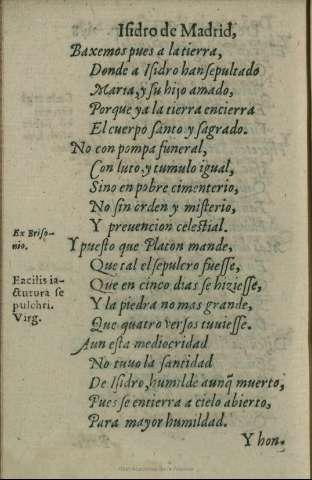 Isidro de Madrid,
Baxemos pues a la tierra,
Donde a Isidro han sepultado
Maria, y su hijo amado,
Porque ya la tierra encierra
El cuerpo santo y sagrado.
No con pompa funeral,
Con luto, y tumulo igual,
Sino en pobre cimenterio,
No sin orden y misterio,
Y preuencion celestial.
Ex Briso-
nio.
Y puesto que Platon mande,
Que tal el sepulcro fuesse,
Facilis ia-
ctutura se
pulchri.
Virg.
Que en cinco dias se hiziesse,
Y la piedra no mas grande,
Que quatro versos tuuiesse.
Aun esta mediocridad
No tuuo la santidad
De Isidro, humilde aunq̃ muerto,
Pues se entierra a cielo abierto,
Para mayor humildad.
Y hon-